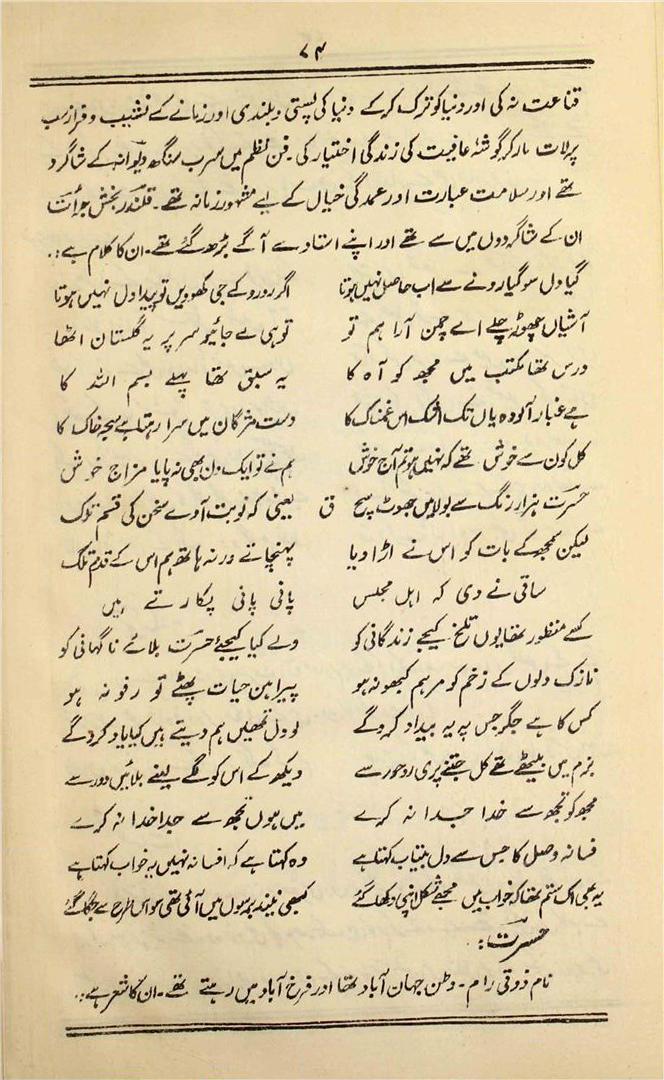 ۷۴
قناعت نہ کی اور دنیا کو ترک کرکے دنیا کی پستی و بلندی اور زمانے کے نشیب و فراز سب
پر لات مار کر گوشۂ عافیت کی زندگی اختیار کی۔ فن نظم میں سرب سنگھ دیوانہ کے شاگرد
تھے اور سلامت عبارت اور عمدگی خیال کے لیے مشہور زمانہ تھے۔ قلندر بخش جرأت
ان کے شاگردوں میں سے تھے اور اپنے استاد سے آگے بڑھ گئے تھے۔ ان کا کلام ہے:۔
گیا دل سو گیا رونے سے اب حاصل نہیں ہوتا اگر رو رو کے جی کھوویں تو پیدا دل نہیں ہوتا
آشیاں چھوڑ چلے اے چمن آرا ہم تو تو ہی لے جائیو سر پر یہ گلستان اٹھا
درس تھا مکتب میں مجھ کو آہ کا یہ سبق تھا پہلے بسم اللہ کا
ہے غبار آلودہ یاں تک اشک اس غمناک کا دست مژگان میں سدا رہتا ہے سبحہ خاک کا
کل کون سے خوش تھے کہ نہیں ہو تم آج خوش ہم نے تو ایک دن بھی نہ پایا مزاج خوش
حسرت ہزار رنگ سے بولا میں جھوٹ سچ ق یعنی کہ نوبت آوے سخن کی قسم تلک
لیکن سمجھ کے بات کو اس نے اڑا دیا پہنچاتے ورنہ ہاتھ ہم اس کے قدم تلک
ساقی نے دی کہ اہل مجلس پانی پانی پکارتے ہیں
کسے منظور تھا یوں تلخ کیجے زندگانی کو ولے کیا کیجئے حسرت بلائے ناگہانی کو
نازک دلوں کے زخم کو مرہم کبھو نہ ہو پیراہن حیات پھٹے تو رفو نہ ہو
کس کا ہے جگر جس پہ یہ بیداد کروگے لو دل تمھیں ہم دیتے ہیں کیا یاد کروگے
بزم میں بیٹھے تھے کل جتنے پری رو حور سے دیکھ کے اس کو لگے لینے بلائیں دور سے
مجھ کو تجھ سے خدا جدا نہ کرے میں ہوں تجھ سے جدا خدا نہ کرے
فسانہ وصل کا جس سے دل بیتاب کہتا ہے وہ کہتا ہے کہ افسانہ نہیں یہ خواب کہتا ہے
یہ بھی اک ستم تھا کہ خواب میں مجھے شکل اپنی دکھا گئے کبھی نیند برسوں میں آئی تھی سو اس طرح سے جگا گئے
حسرت:۔
نام ذوقی رام۔ وطن جہان آباد تھا اور فرخ آباد میں رہتے تھے۔ ان کا شعر ہے:۔